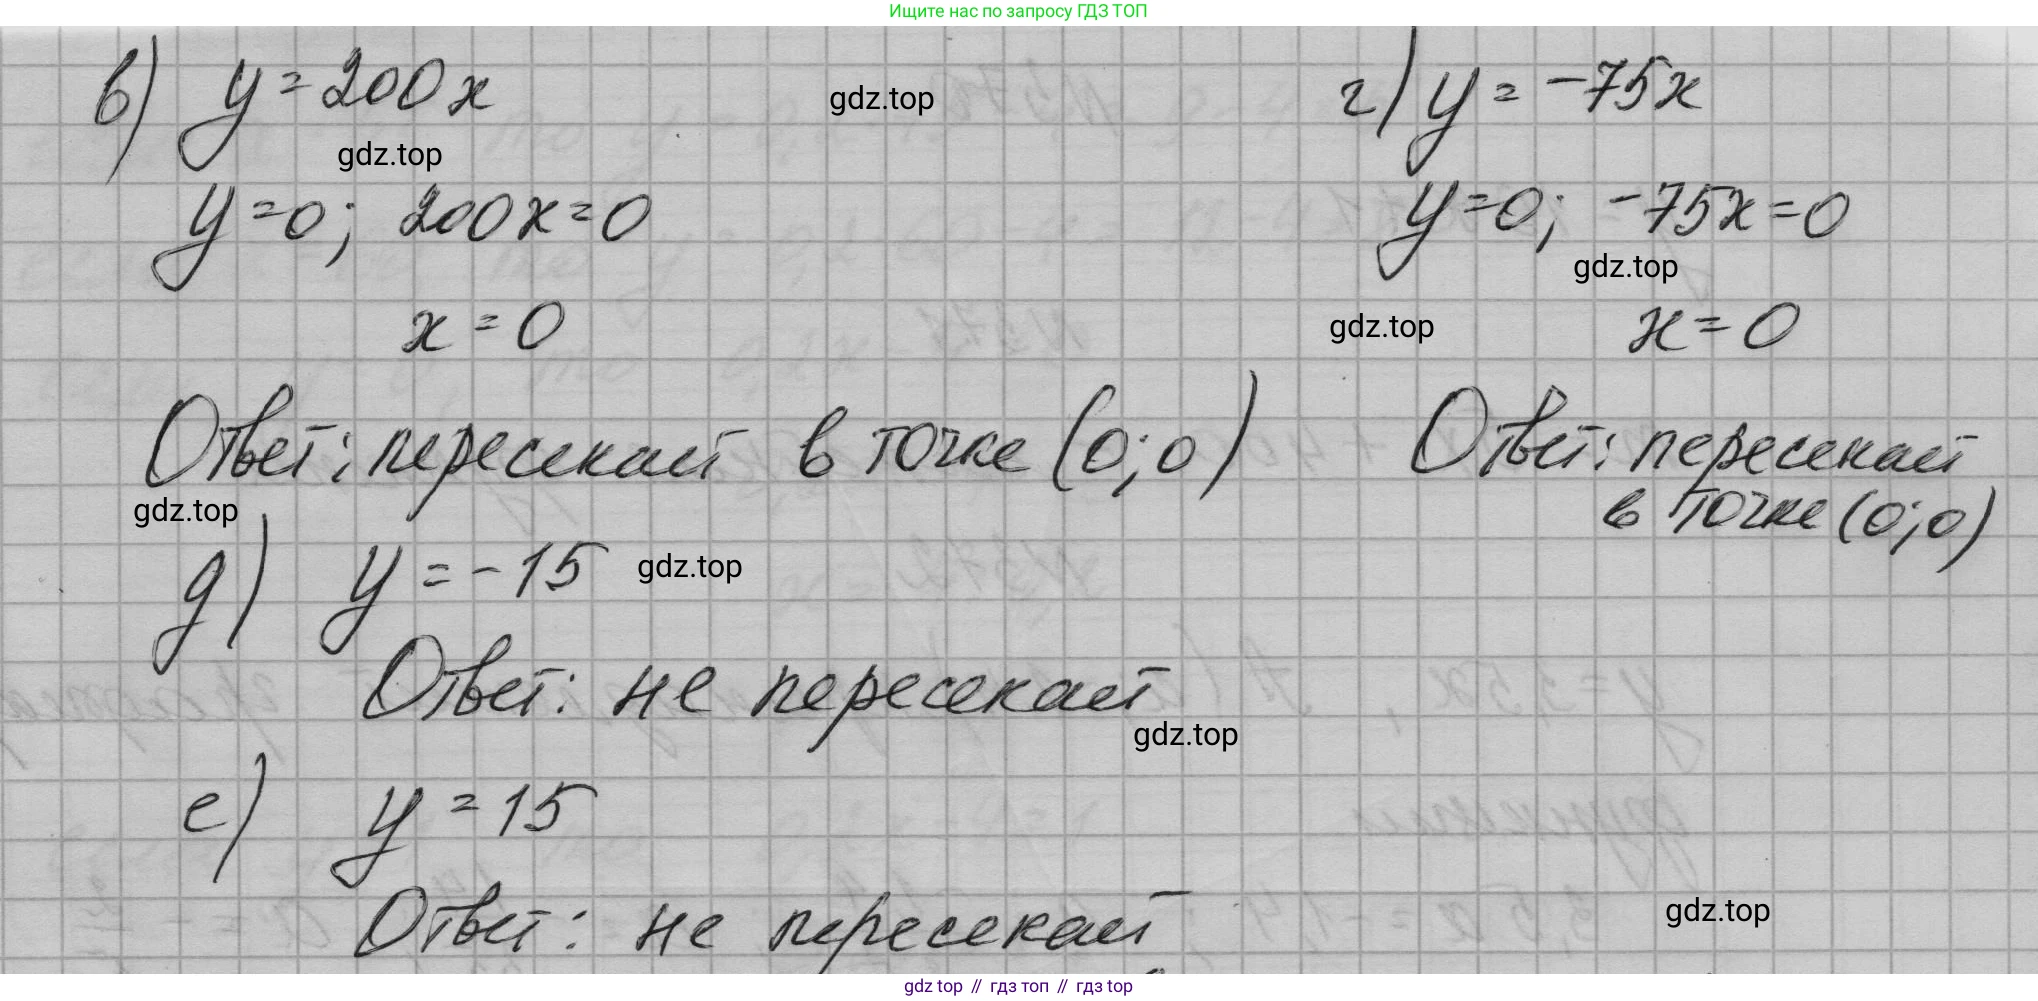 Ищите нас по запросу ГДЗ ТОП
в) y = 200x
gdz.top
г) y = -75x
gdz.top
y = 0; 200x = 0
y = 0; -75x = 0
gdz.top
x = 0
gdz.top
x = 0
Ответ: пересекает в точке (0; 0)
Ответ: пересекает
в точке (0; 0)
gdz.top
д) y = -15
gdz.top
Ответ: не пересекает
gdz.top
е) y = 15
gdz.top
Ответ: не пересекает
gdz top // гдз топ // гдз top